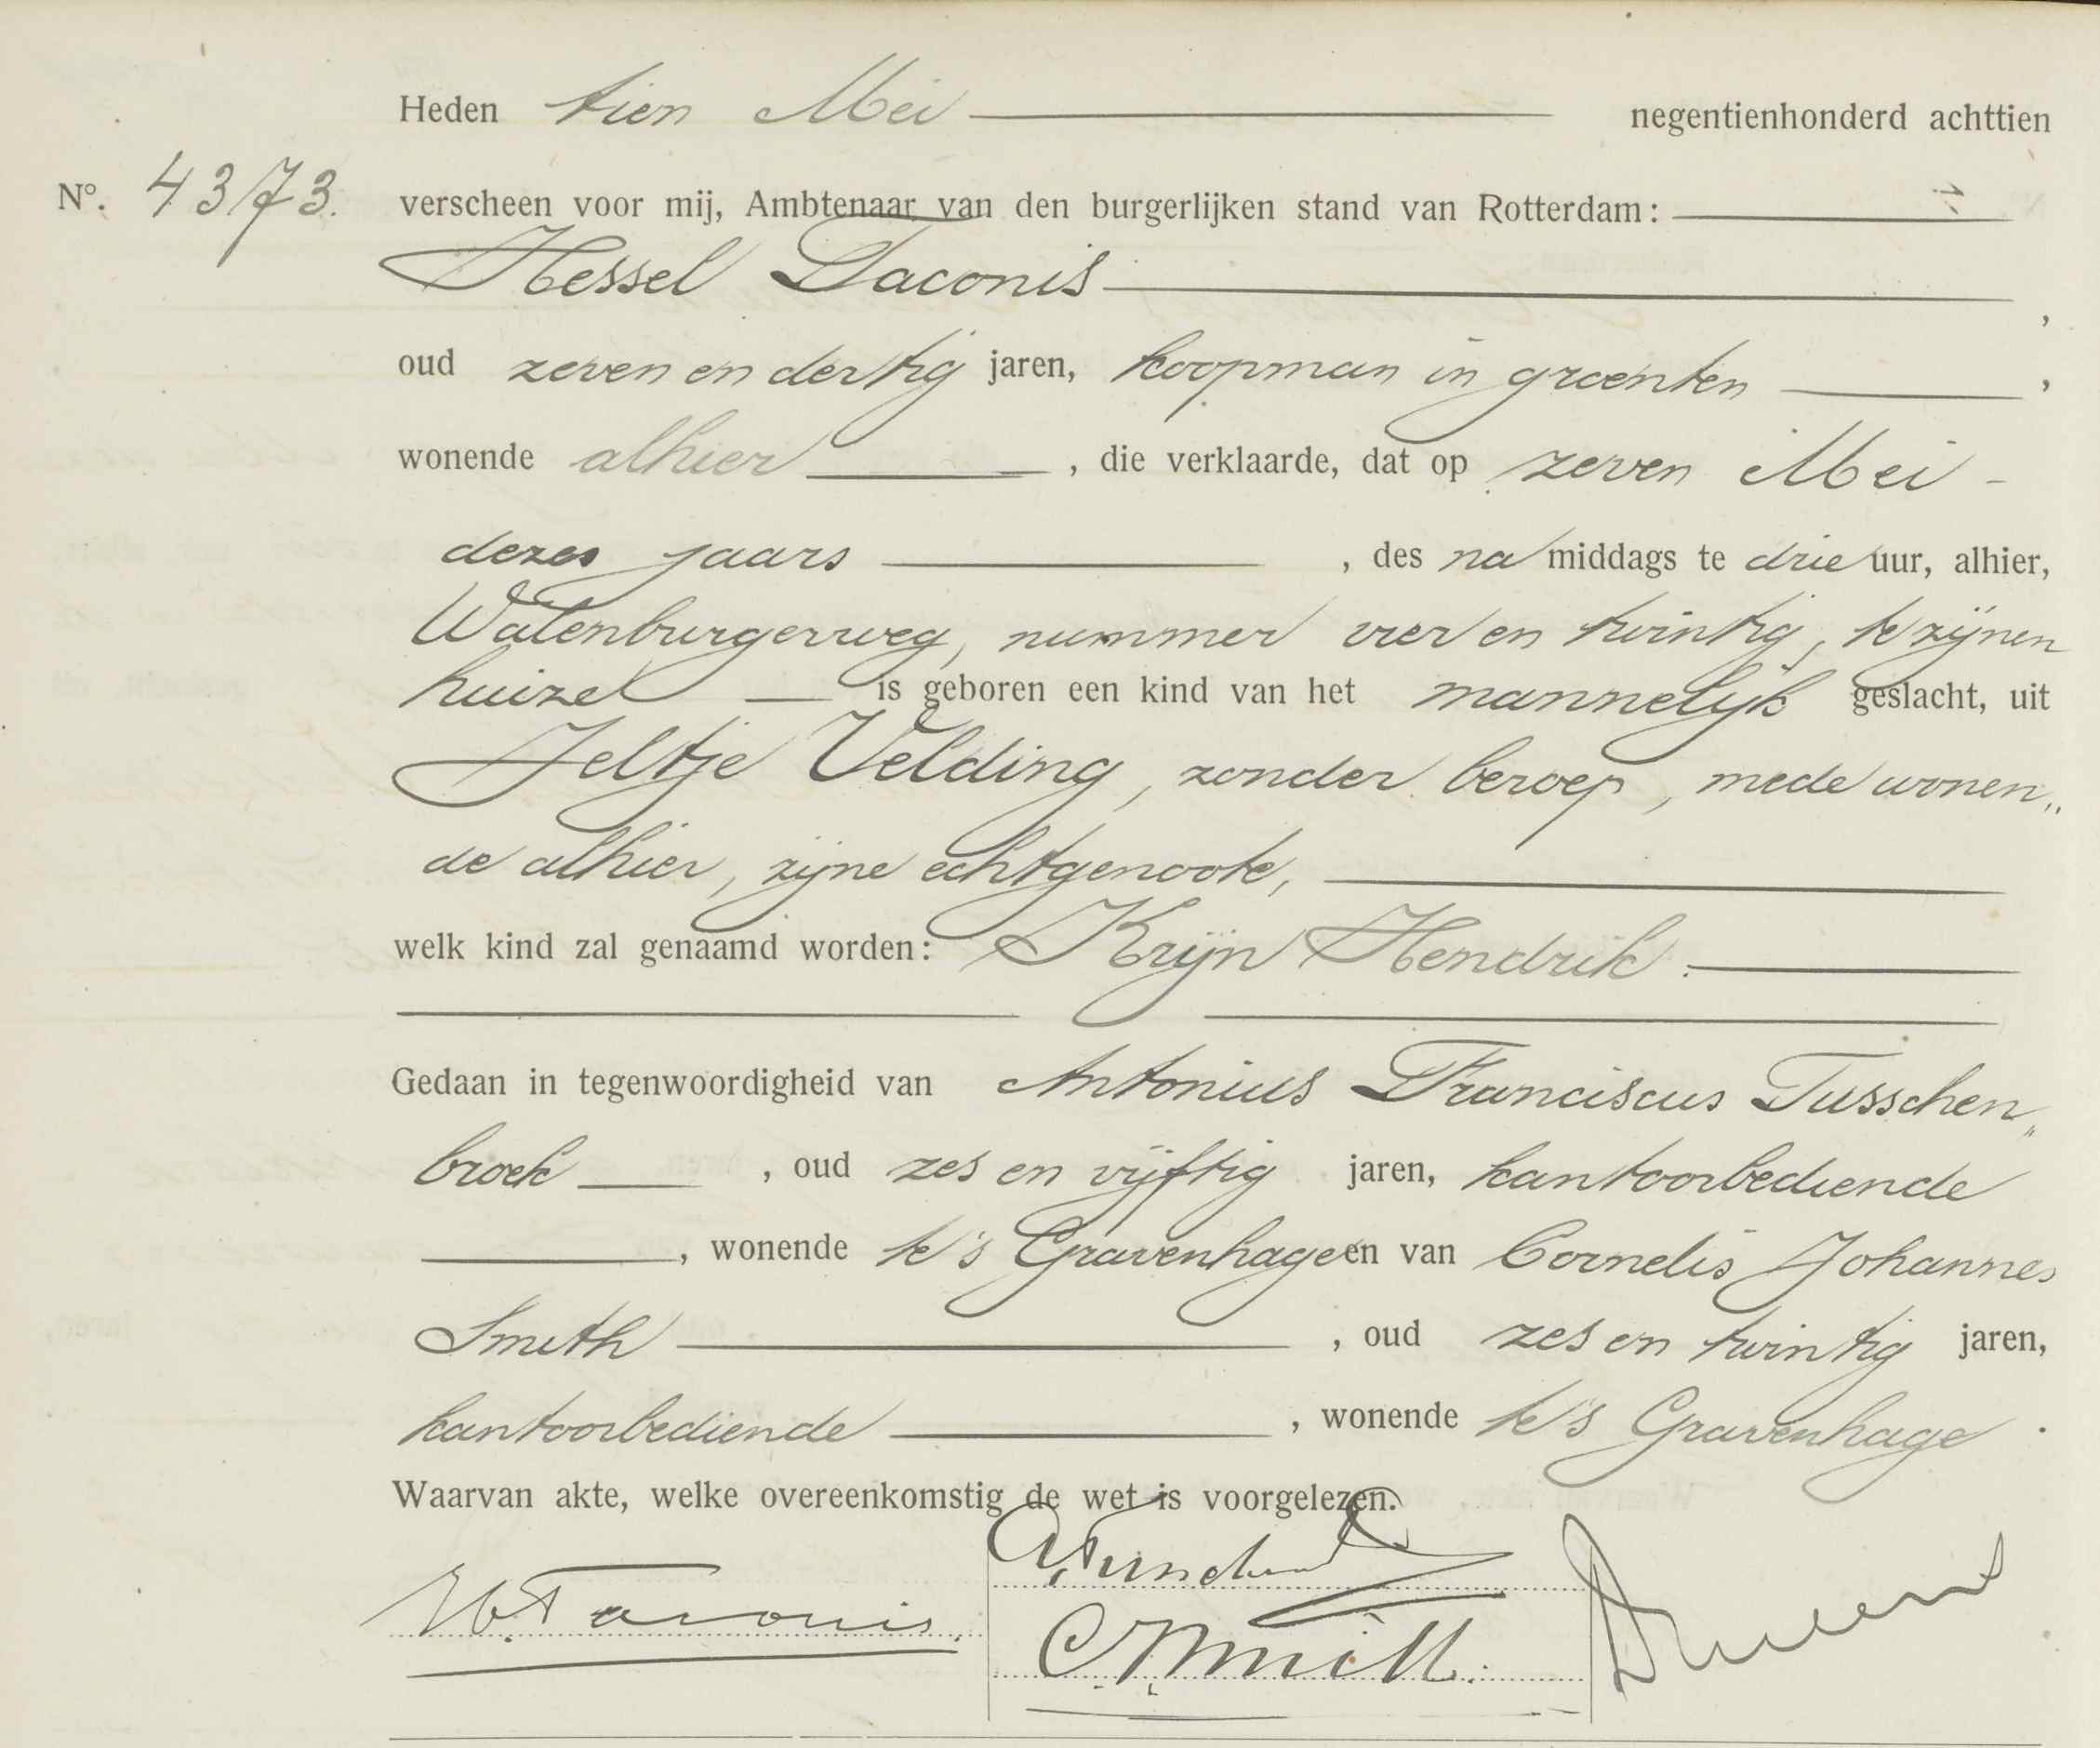 Heden tien Mei negentienhonderd achttien
No. 4373. verscheen voor mij, Ambtenaar van den burgerlijken stand van Rotterdam:
Hessel Taconis,
oud zeven en dertig jaren, koopman in groenten,
wonende alhier, die verklaarde, dat op zeven Mei
dezes jaars, des na middags te drie uur, alhier,
Walenburgerweg, nummer vier en twintig, te zijnen
huize is geboren een kind van het mannelijk geslacht, uit
Jeltje Velding, zonder beroep, mede wonen„
de alhier, zijne echtgenoote,
welk kind zal genaamd worden: Krijn Hendrik.
Gedaan in tegenwoordigheid van Antonius Franciscus Tusschen„
broek, oud zes en vijftig jaren, kantoorbediende
, wonende te 's Gravenhage en van Cornelis Johannes
Smith, oud zes en twintig jaren,
kantoorbediende, wonende te 's Gravenhage.
Waarvan akte, welke overeenkomstig de wet is voorgelezen.
H. Taconis.
CJSmith.